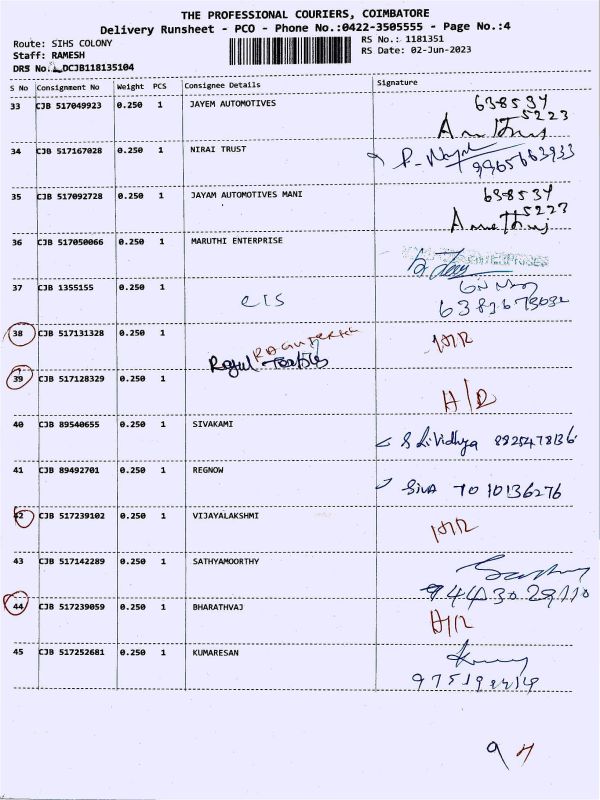 THE PROFESSIONAL COURIERS, COIMBATORE
Delivery Runsheet - PCO - Phone No.:0422-3505555 - Page No.:4
Route: SIHS COLONY
RS No.: 1181351
Staff: RAMESH
RS Date: 02-Jun-2023
DRS No. DCJB118135104
S No Consignment No Weight PCS Consignee Details Signature
33 CJB 517049923 0.250 1 JAYEM AUTOMOTIVES 638534
5223
34 CJB 517167028 0.250 1 NIRAI TRUST
9965663933
35 CJB 517092728 0.250 1 JAYAM AUTOMOTIVES MANI 638534
5223
36 CJB 517050066 0.250 1 MARUTHI ENTERPRISE
ENTERPRISES
37 CJB 1355155 0.250 1 CIS
38 CJB 517131328 0.250 1
39 CJB 517128329 0.250 1 H/R
40 CJB 89540655 0.250 1 SIVAKAMI
S Srividhya 8925478136
41 CJB 89492701 0.250 1 REGNOW
Siva 7010136276
42 CJB 517239102 0.250 1 VIJAYALAKSHMI
43 CJB 517142289 0.250 1 SATHYAMOORTHY
9443029110
44 CJB 517239059 0.250 1 BHARATHVAJ H/R
45 CJB 517252681 0.250 1 KUMARESAN
9 4